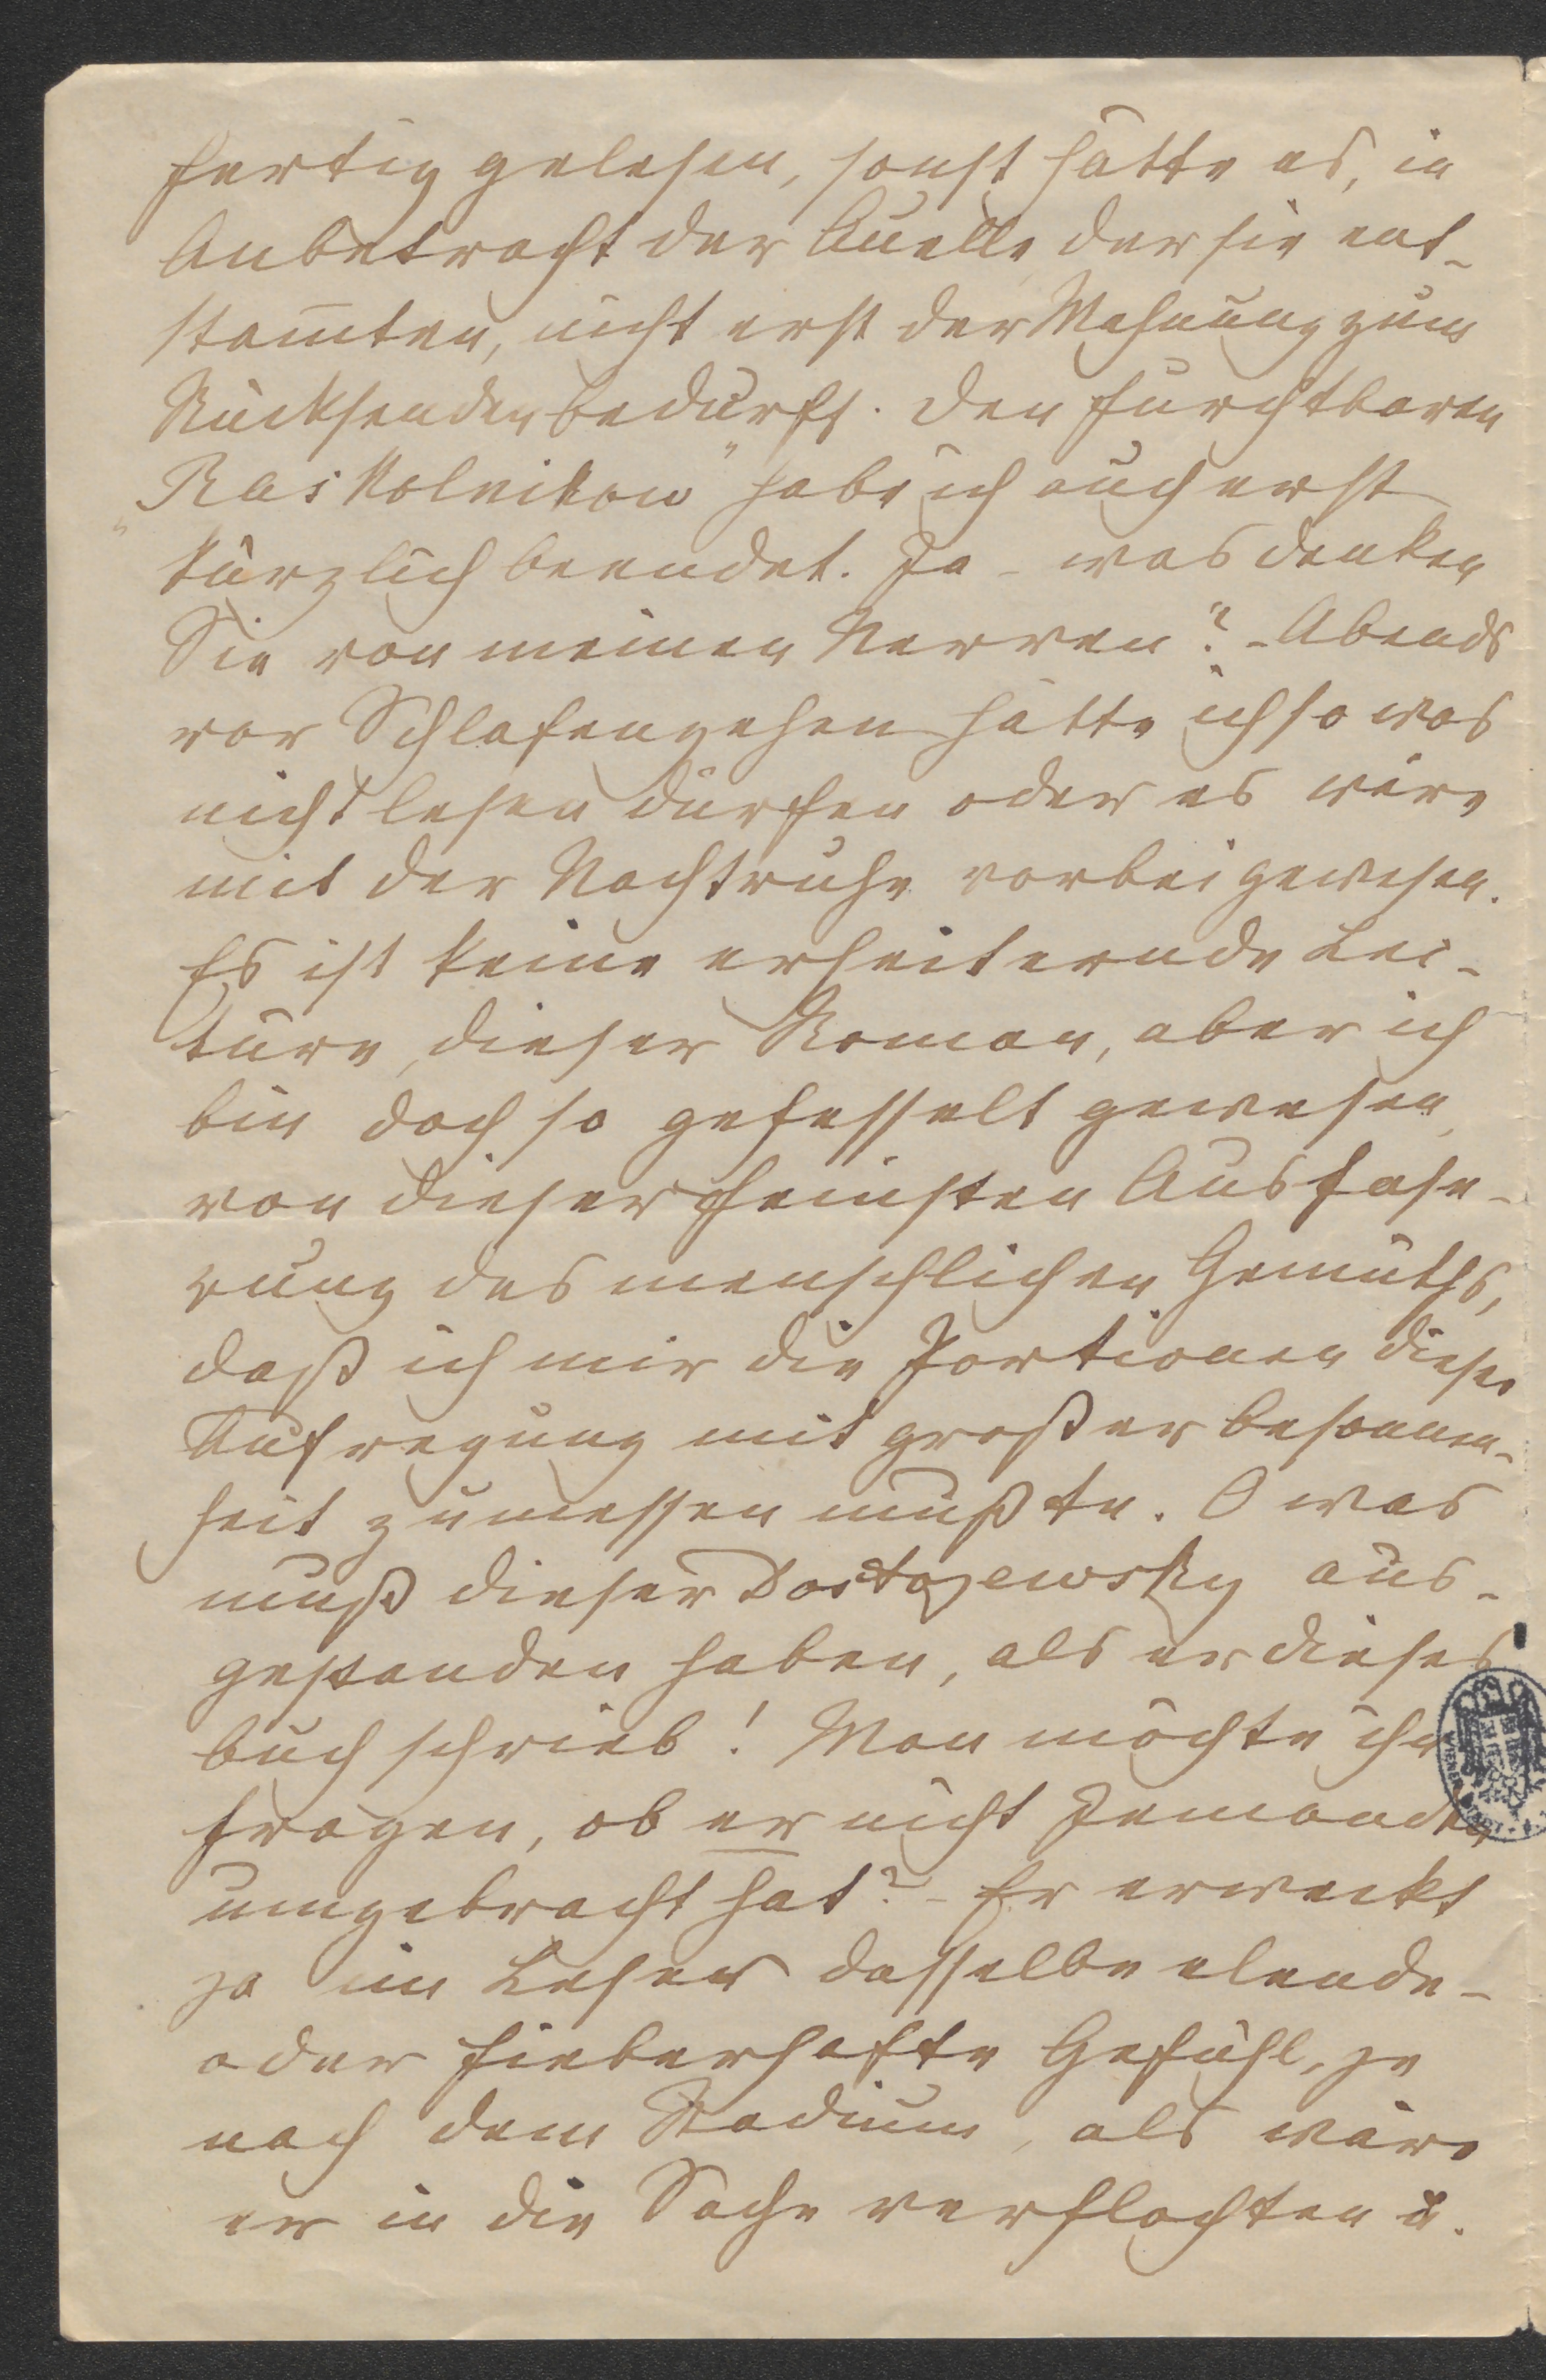 fertig gelesen, sonst hätte es, in
Anbetracht der Quelle der sie ent-
stam̅ten, nicht erst der Mahnung zum
Rücksenden bedurft. Den furchtbaren
„Raskolnikow" habe ich auch erst
kürzlich beendet. Ja - was denken
Sie von meinen Nerven? - Abends
vor Schlafengehen hätte ich so was
nicht lesen dürfen oder es wäre
mit der Nachtruhe vorbei gewesen.
Es ist keine erheiternde Lec-
türe, dieser Roman, aber ich
bin doch so gefesselt gewesen,
von dieser feinsten Ausfase-
rung des menschlichen Gemüths,
daß ich mir die Portionen dieser
Aufregung mit großer Besonnen-
heit zumessen mußte. O was
muß dieser Dostojewsky aus-
gestanden haben, als er dieses
Buch schrieb! Man möchte ihn
fragen, ob er nicht Jemanden
umgebracht hat? - Er erweckt
ja im Leser dasselbe elende-
oder fieberhafte Gefühl, je
nach dem Stadium, als wäre
er in die Sache verflochten u.